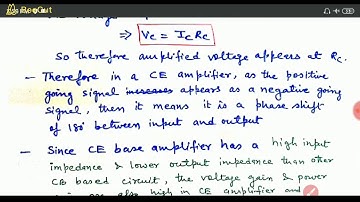 BeeCut
⇒ Vc = IcRc
So therefore amplified voltage appears at Rc.
- Therefore in a CE amplifier, as the positive
going signal increases appears as a negative going
signal, then it means it is a phase shift
of 180 between input and output
- Since CE base amplifier has a high input
impedance & lower output impedance than other
CB based circuit, the voltage gain & power
also high in CE amplifier and